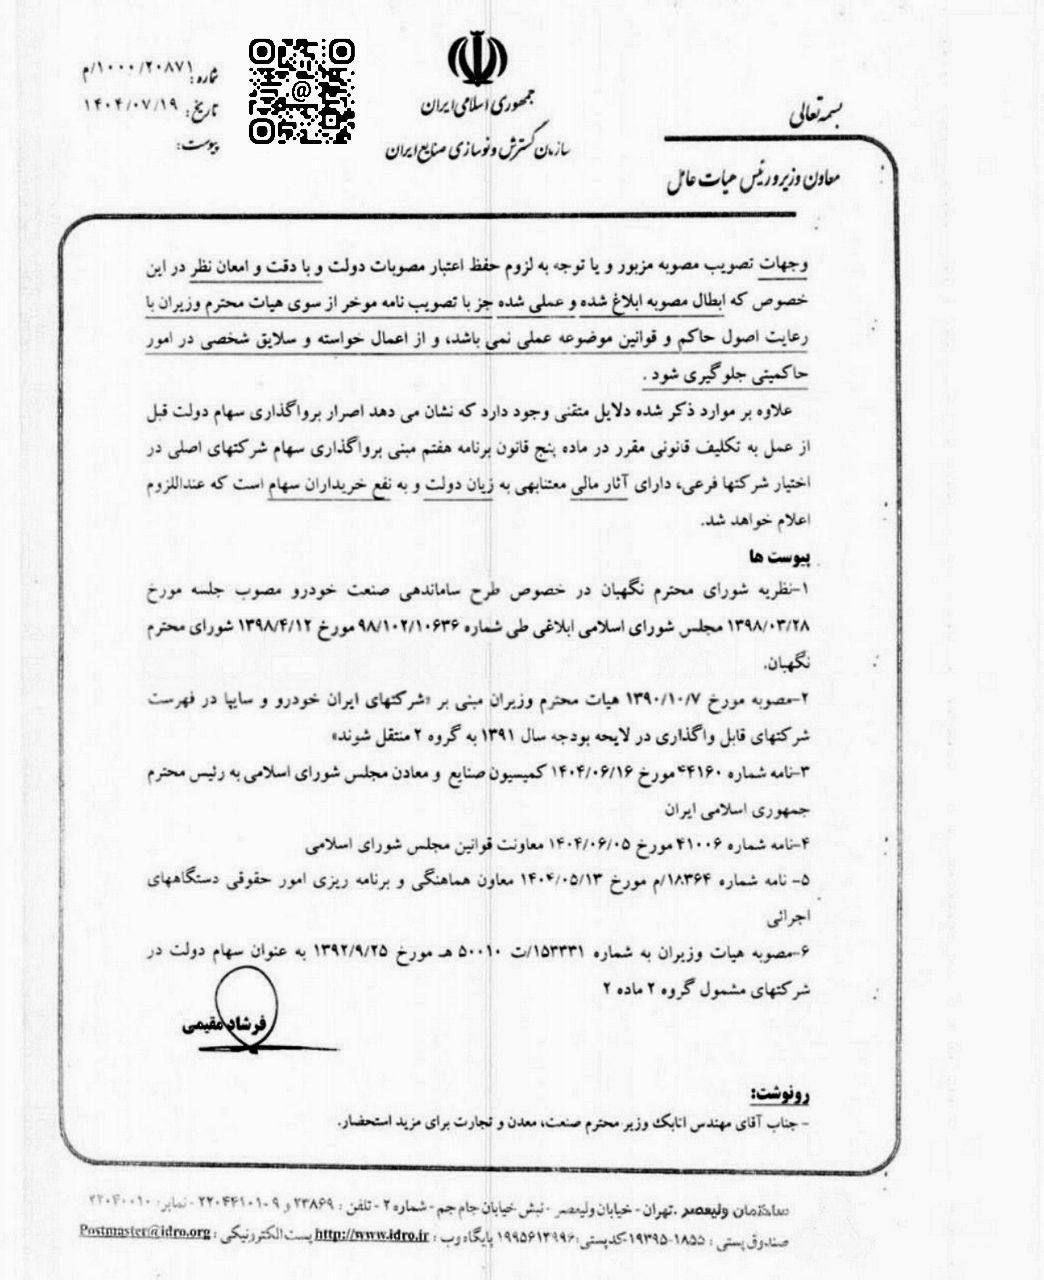 بسمه تعالی
جمهوری اسلامی ایران
سازمان گسترش و نوسازی صنایع ایران
معاون وزیر و رئیس هیات عامل
شماره: ۱۰۰۰/۲۰۸۷۱/م
تاریخ: ۱۴۰۴/۰۷/۱۹
پیوست:
وجهات تصویب مصوبه مزبور و یا توجه به لزوم حفظ اعتبار مصوبات دولت و با دقت و امعان نظر در این
خصوص که ابطال مصوبه ابلاغ شده و عملی شده جز با تصویب نامه موخر از سوی هیات محترم وزیران با
رعایت اصول حاکم و قوانین موضوعه عملی نمی باشد، و از اعمال خواسته و سلایق شخصی در امور
حاکمیتی جلوگیری شود .
علاوه بر موارد ذکر شده دلایل متقنی وجود دارد که نشان می دهد اصرار برواگذاری سهام دولت قبل
از عمل به تکلیف قانونی مقرر در ماده پنج قانون برنامه هفتم مبنی برواگذاری سهام شرکتهای اصلی در
اختیار شرکتها فرعی، دارای آثار مالی معتنابهی به زیان دولت و به نفع خریداران سهام است که عنداللزوم
اعلام خواهد شد.
پیوست ها
۱-نظریه شورای محترم نگهبان در خصوص طرح ساماندهی صنعت خودرو مصوب جلسه مورخ
۱۳۹۸/۰۳/۲۸ مجلس شورای اسلامی ابلاغی طی شماره ۹۸/۱۰۲/۱۰۶۳۶ مورخ ۱۳۹۸/۴/۱۲ شورای محترم
نگهبان.
۲-مصوبه مورخ ۱۳۹۰/۱۰/۷ هیات محترم وزیران مبنی بر «شرکتهای ایران خودرو و سایپا در فهرست
شرکتهای قابل واگذاری در لایحه بودجه سال ۱۳۹۱ به گروه ۲ منتقل شوند»
۳-نامه شماره ۴۴۱۶۰ مورخ ۱۴۰۴/۰۶/۱۶ کمیسیون صنایع و معادن مجلس شورای اسلامی به رئیس محترم
جمهوری اسلامی ایران
۴-نامه شماره ۴۱۰۰۶ مورخ ۱۴۰۴/۰۶/۰۵ معاونت قوانین مجلس شورای اسلامی
۵- نامه شماره ۱۸۳۶۴/م مورخ ۱۴۰۴/۰۵/۱۳ معاون هماهنگی و برنامه ریزی امور حقوقی دستگاههای
اجرائی
۶-مصوبه هیات وزیران به شماره ۱۵۳۳۳۱/ت ۵۰۰۱۰ هـ مورخ ۱۳۹۲/۹/۲۵ به عنوان سهام دولت در
شرکتهای مشمول گروه ۲ ماده ۲
فرشاد مقیمی
رونوشت:
- جناب آقای مهندس اتابک وزیر محترم صنعت، معدن و تجارت برای مزید استحضار.
ساختمان ولیعصر .تهران - خیابان ولیعصر - نبش خیابان جام جم - شماره ۲ - تلفن : ۲۳۸۶۹ و ۹-۲۲۰۴۴۱۰۱ - نمابر: ۲۲۰۴۰۰۱۰
صندوق پستی : ۱۸۵۵-۱۹۳۹۵ کدپستی: ۱۹۹۵۶۱۳۹۹۶ پایگاه وب : http://www.idro.ir پست الکترونیکی : Postmaster@idro.org